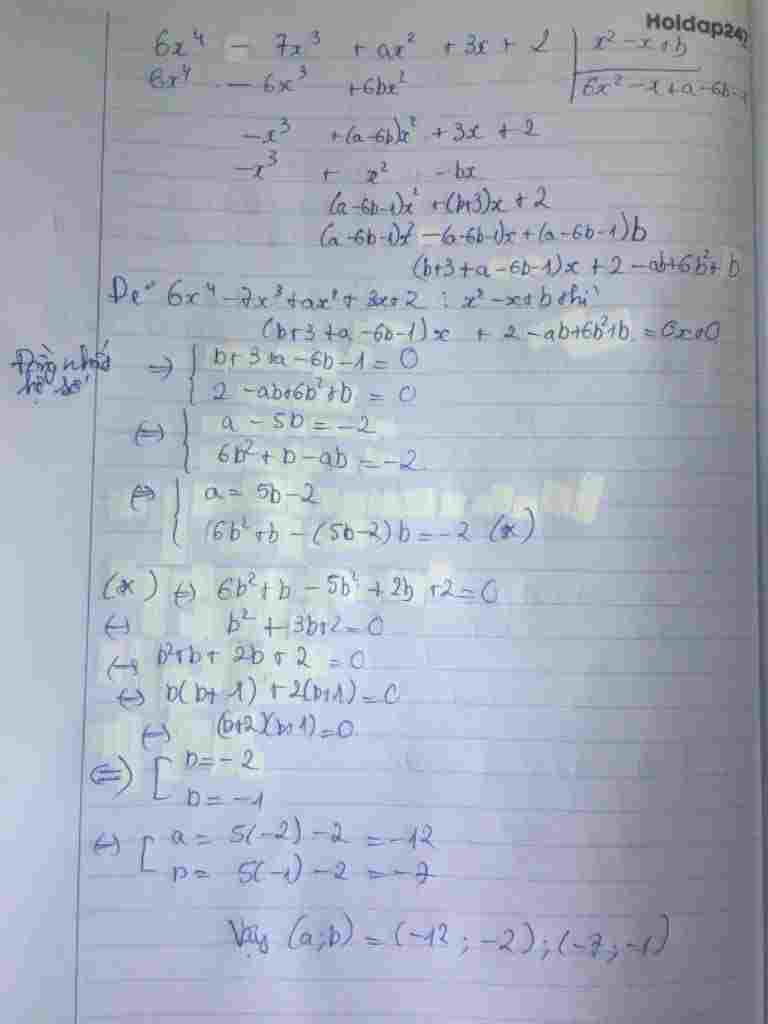 Hoidap247
6x⁴ - 7x³ + ax² + 3x + 2 | x² - x + b
6x⁴ - 6x³ + 6bx² | 6x² - x + a - 6b -
-x³ + (a-6b)x² + 3x + 2
-x³ + x² - bx
(a-6b-1)x² + (b+3)x + 2
(a-6b-1)x² - (a-6b-1)x + (a-6b-1)b
(b+3+a-6b-1)x + 2 - ab + 6b² + b
Để 6x⁴ - 7x³ + ax² + 3x + 2 ⋮ x² - x + b thì
(b+3+a-6b-1)x + 2 - ab + 6b² + b = 0x + 0
Đồng nhất hệ số => { b + 3 + a - 6b - 1 = 0
2 - ab + 6b² + b = 0
<=> { a - 5b = -2
6b² + b - ab = -2
<=> { a = 5b - 2
6b² + b - (5b-2)b = -2 (*)
(*) <=> 6b² + b - 5b² + 2b + 2 = 0
<=> b² + 3b + 2 = 0
<=> b² + b + 2b + 2 = 0
<=> b(b+1) + 2(b+1) = 0
<=> (b+2)(b+1) = 0
<=> [ b = -2
b = -1
<=> [ a = 5(-2) - 2 = -12
b = 5(-1) - 2 = -7
Vậy (a;b) = (-12; -2); (-7; -1)